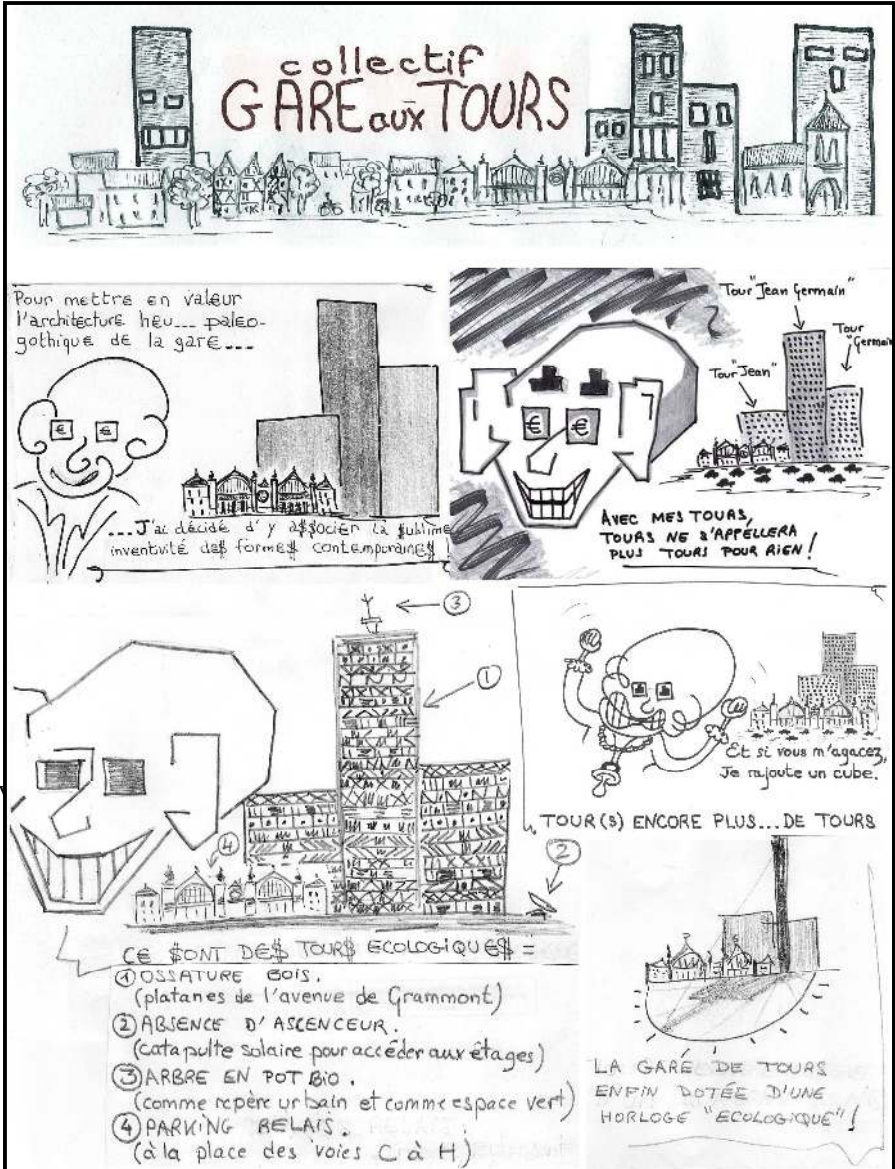 collectif
GARE aux TOURS
Pour mettre en valeur
l'architecture heu... paleo-
gothique de la gare....
€ €
....J'ai décidé d'y a$$ocier la $ublime
inventivité de$ forme$ contemporaine$ !
Tour "Jean Germain"
Tour "Jean"
Tour
"Germain"
€ €
AVEC MES TOURS,
TOURS NE S'APPELLERA
PLUS TOURS POUR RIEN !
③
①
④
②
CE $ONT DE$ TOUR$ ECOLOGIQUE$ =
① OSSATURE BOIS.
(platanes de l'avenue de Grammont)
② ABSENCE D'ASCENCEUR.
(catapulte solaire pour accéder aux étages)
③ ARBRE EN POT BIO.
(comme repère urbain et comme espace vert)
④ PARKING RELAIS.
(à la place des voies C à H)
Et si vous m'agacez,
Je rajoute un cube.
TOUR(S) ENCORE PLUS...DE TOURS
LA GARE DE TOURS
ENFIN DOTÉE D'UNE
HORLOGE "ECOLOGIQUE" !